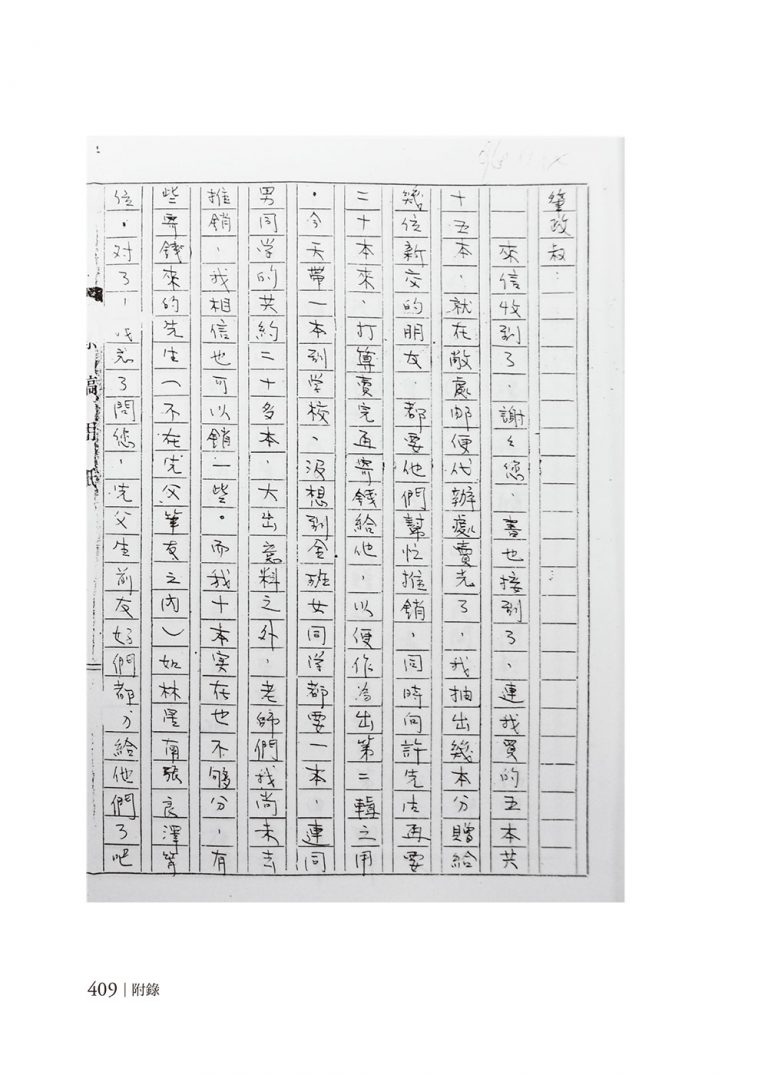 肇政叔：
來信收到了，謝々您，書也接到了，連我買的五本共
十五本，就在敝處郵便代辦處賣完了，我抽出幾本分贈給
幾位新交的朋友，都要他們幫忙推銷，同時向許先生再要
二十本來，打算賣完再寄錢給他，以便作為出第二輯之用
。今天帶一本到學校，沒想到全班女同学都要一本，連同
男同学的共約二十多本，大出意料之外，老師們我尚未去
推銷，我相信也可以銷一些。而我十本实在也不够分，有
些寄錢來的先生（不在先父筆友之內）如林星南張良澤等
位。对了，忘了問您，先父生前友好們都分給他們了吧
409 | 附錄